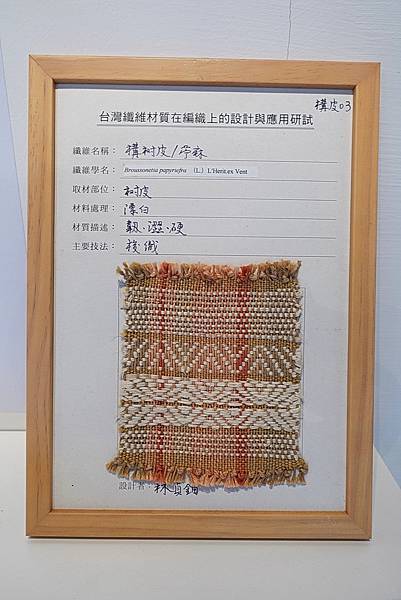 構皮03
台灣纖維材質在編織上的設計與應用研試
纖維名稱：構樹皮/苧麻
纖維學名：Brousonetia papyruefra （L）L'Herit.ex Vent
取材部位：樹皮
材料處理：漂白
材質描述：韌、澀、硬
主要技法：梭織
設計者：林貞鈿